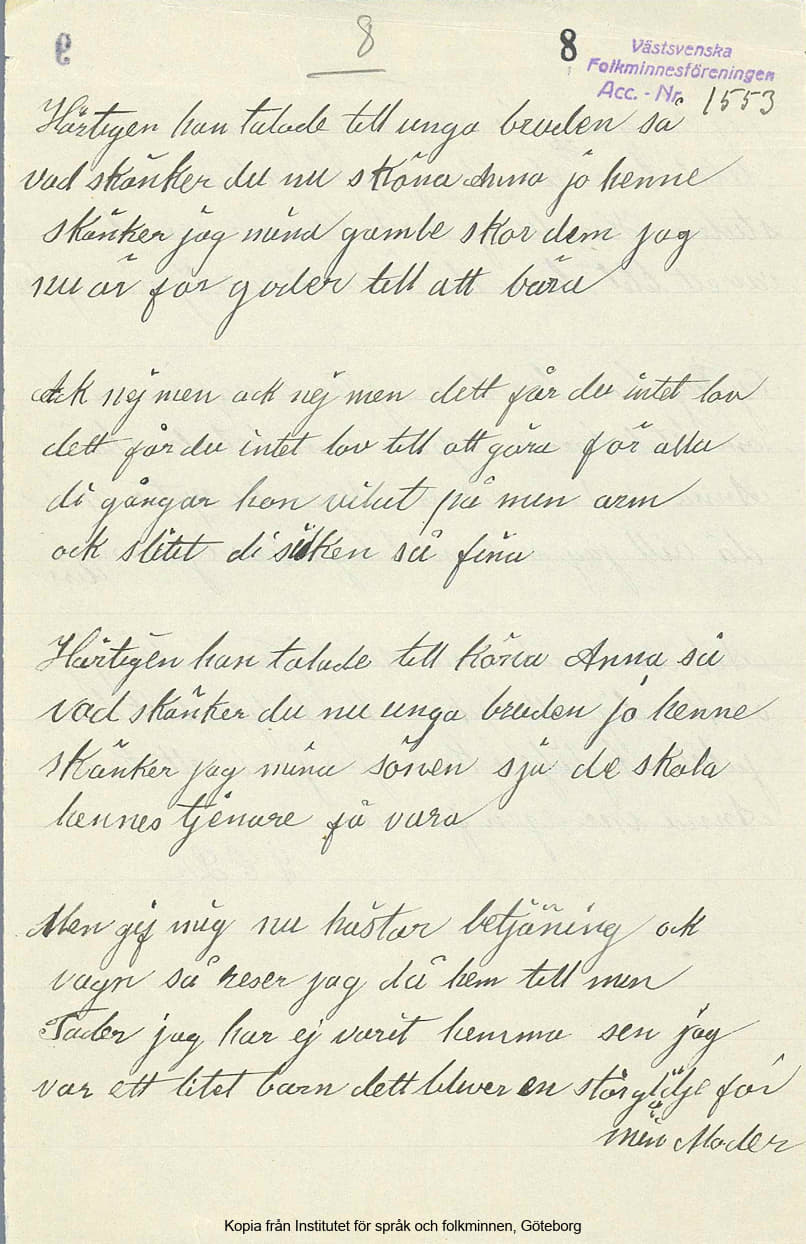 8
8
Västsvenska
Folkminnesföreningen
Acc. - Nr. 1553
Härtigen han talade till unga bruden så
vad skänker du nu sköna Anna jo henne
skänker jag mina gamle skor dem jag
nu är för goder till att bära
Ack nej men ack nej men dett får du intet lov
dett får du intet lov till att göra för alla
di gångar hon vilat på min arm
ock slitit di silken så fina
Härtigen han talade till köna Anna så
vad skänker du nu unga bruden jo henne
skänker jag mina sönen sju de skola
hennes tjenare få vara
Men gif mig nu hästar betjäning ock
vagn så reser jag då hem till min
Fader jag har ej varit hemma sen jag
var ett litet barn dett bliver en stör glädje för
min Moder
Kopia från Institutet för språk och folkminnen, Göteborg